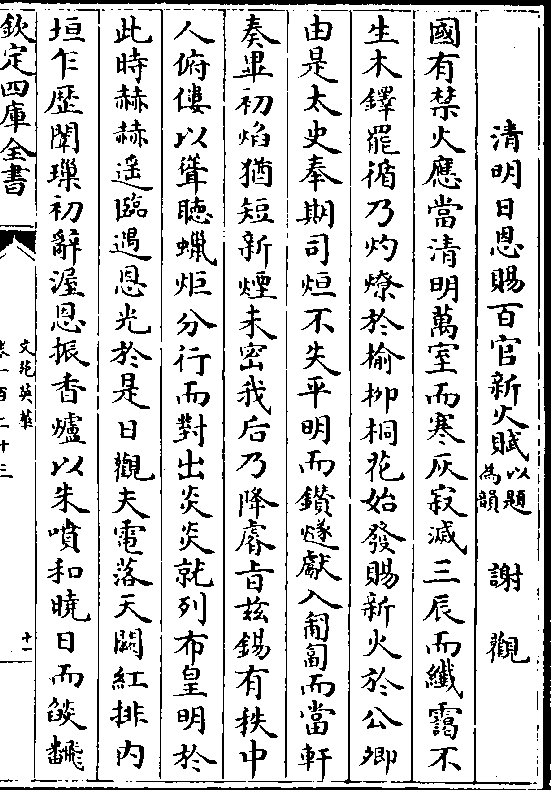 清明日恩賜百官新火賦以題為韻 謝觀
國有禁火應當清明萬室而寒灰寂滅三辰而纖靄不
生木鐸罷循乃灼燎於榆柳桐花始發賜新火於公卿
由是太史奉期司烜不失平明而鑽燧獻入匍匐而當軒
奏畢初焰猶短新煙未密我后乃降睿旨兹錫有秩中
人俯僂以聳聽蠟炬分行而對出炎炎就列布皇明於
此時赫赫遥臨遇恩光於是日觀夫電落天闕紅排内
垣乍歴闈璅初辭渥恩振香爐以朱噴和曉日而燄翻
欽定四庫全書
文苑英華
卷一百二十三
十一